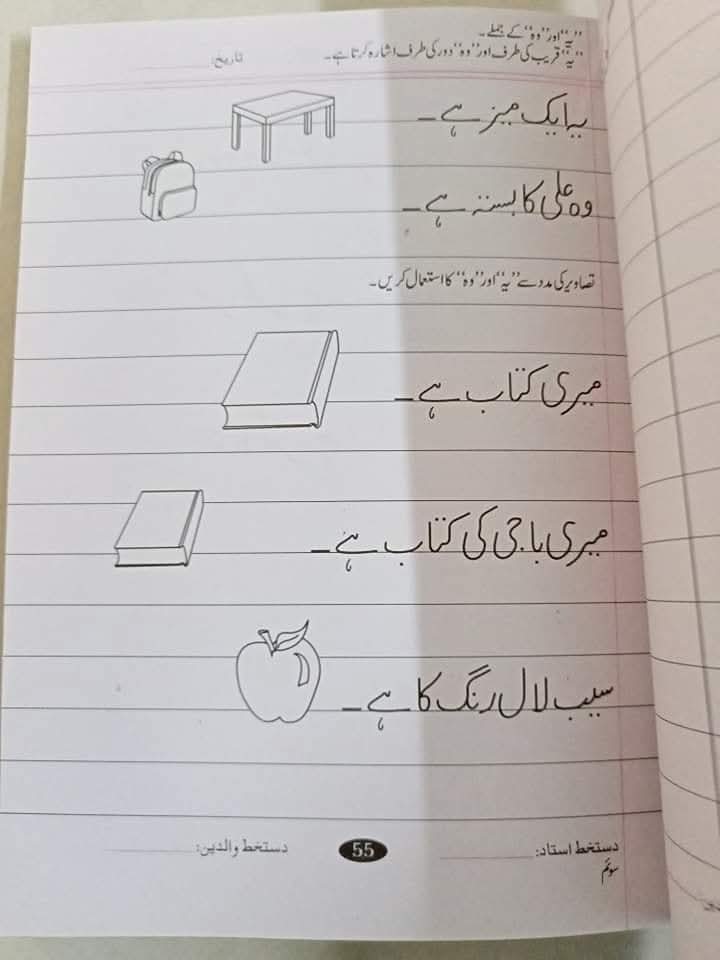 ”یہ“ اور ”وہ“ کے جملے۔
”یہ“ قریب کی طرف اور ”وہ“ دور کی طرف اشارہ کرتا ہے۔
تاریخ:
یہ ایک میز ہے۔
وہ علی کا بستہ ہے۔
تصاویر کی مدد سے ”یہ“ اور ”وہ“ کا استعمال کریں۔
میری کتاب ہے۔
میری باجی کی کتاب ہے۔
سیب لال رنگ کا ہے۔
دستخط استاد:
55
دستخط والدین:
سوئم